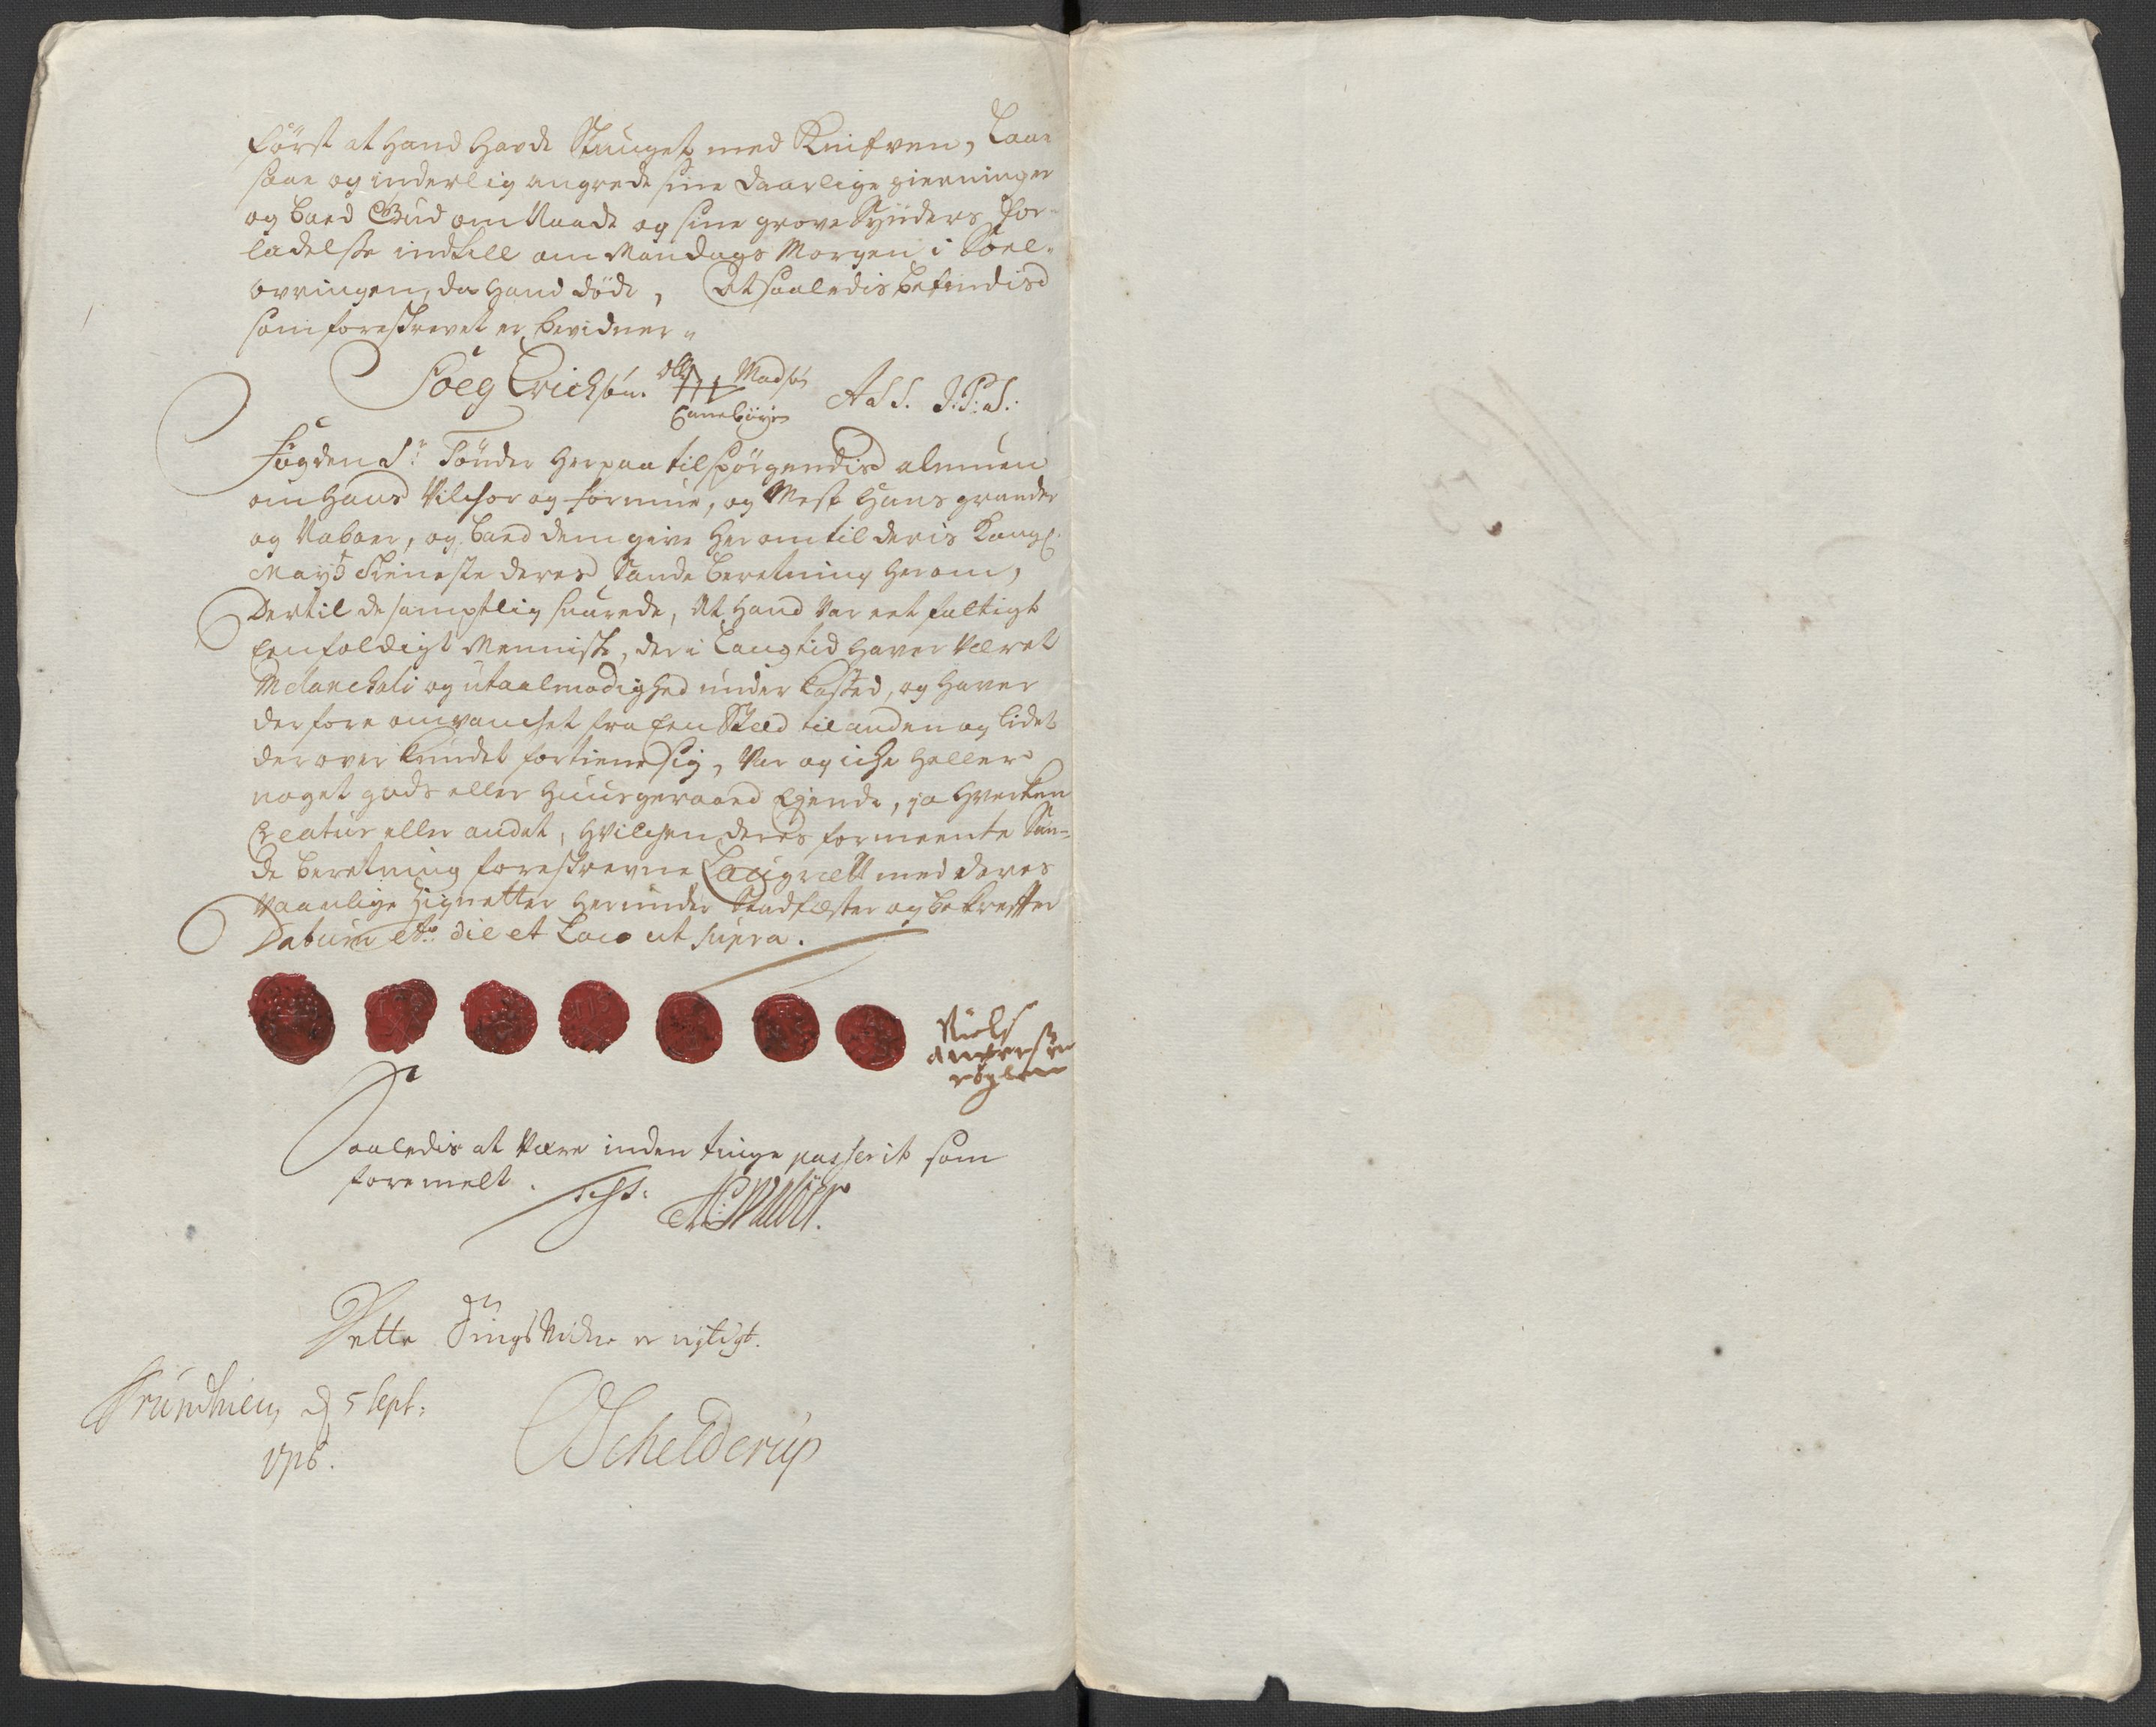 først at hand havde Stunget med Knifven, Laae
saae og inderlig angrede sine daarlige gierninger
og baed Gud om Naade og sine grove Synders for-
ladelse indtill om Mandags Morgen i Soel-
ovringen, da hand døde, At saaledis befindis
som foreskrevet er, bevidner
Poeg Erichsøn. Olle Madsøn A S S. J.P.S.:
Fogden Sr. Tønder herpaa tilspørgendis almuen
om hans Vilchor og formue, og Mest hans grander
og Naboer, og baed dem give herom til deris Kongl.
Mayts tieneste deres Sande beretning herom,
Dertil de samptlig suarede, At hand var eet fattigt
Eenfoldigt Menniske, der i Lang tid haver været
Melancholi og utaalmodighed underkasted, og haver
derfore omvancket fra Een Stæd til anden og lidet
derover kundet fortiene sig, Var og iche heller
noget gods eller huusgeraad Ejende, ja hverken
Creatur eller andet, hvilchen deres formeente San-
de beretning foreskrevne Laugrett med deres
vaanlige Signetter herunder Stadfæster og bekrefter
Datum etc. die et Loco ut supra.
Niels
anderssøn
Saaledis at være inden tinge passerit som
foremelt. test:
Dette Tings Vidne er rigtigt.
Trundhiem d 5 Sept:
Schelderup